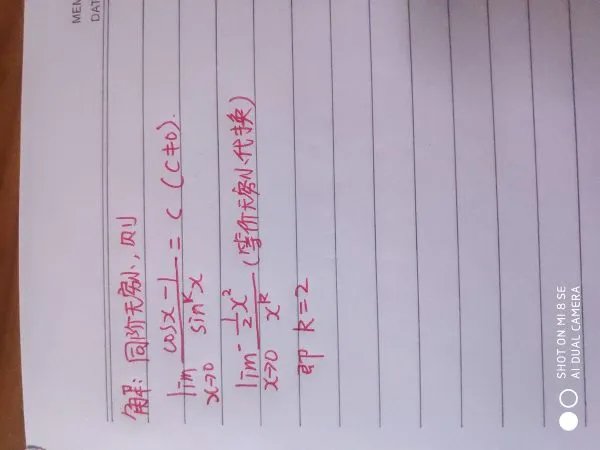 MEM
DAT
解: 同阶无穷小, 则
lim x→0 (cosx-1)/(sin^k x) = c (c≠0).
lim x→0 (-1/2 x^2)/(x^k) (等价无穷小代换)
即 k=2
SHOT ON MI 8 SE
AI DUAL CAMERA